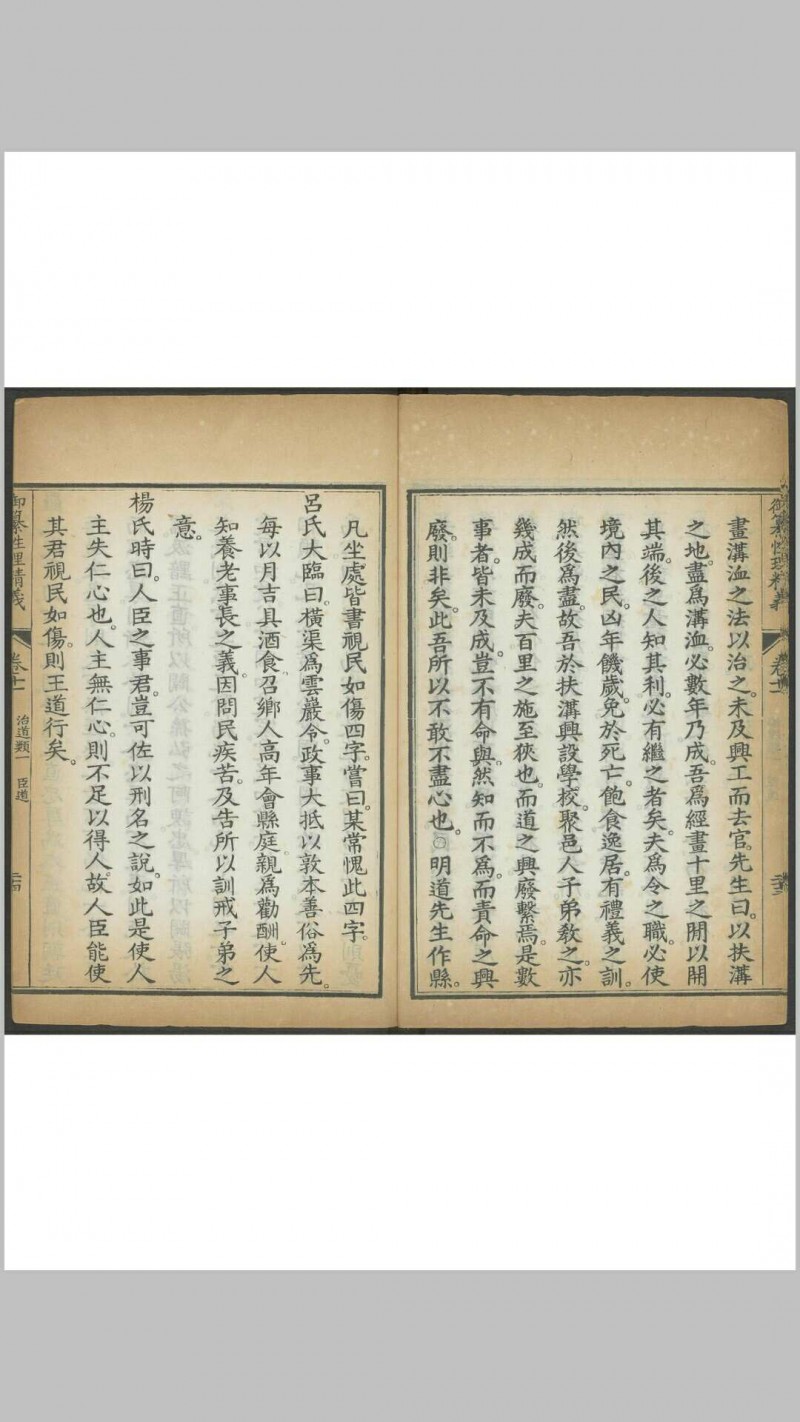 畫溝洫之法以治之。未及興工而去官。先生曰。以扶溝
之地。盡爲溝洫。必數年乃成。吾爲經畫十里之閒。以開
其端。後之人知其利。必有繼之者矣。夫爲令之職。必使
境內之民。凶年饑歲。免於死亡。飽食逸居。有禮義之訓。
然後爲盡。故吾於扶溝興設學校。聚邑人子弟教之。亦
幾成而廢。夫百里之施至狹也。而道之興廢繫焉。是數
事者。皆未及成。豈不有命與。然知而不爲。而責命之興
廢。則非矣。此吾所以不敢不盡心也。○明道先生作縣。
凡坐處皆書視民如傷四字。嘗曰。某常愧此四字。
呂氏大臨曰。橫渠爲雲巖令。政事大抵以敦本善俗爲先。
每以月吉具酒食。召鄉人高年會縣庭。親爲勸酬。使人
知養老事長之義。因問民疾苦。及告所以訓戒子弟之
意。
楊氏時曰。人臣之事君。豈可佐以刑名之說。如此是使人
主失仁心也。人主無仁心。則不足以得人。故人臣能使
其君視民如傷。則王道行矣。
御纂性理精義
卷十一
治道類一 臣道